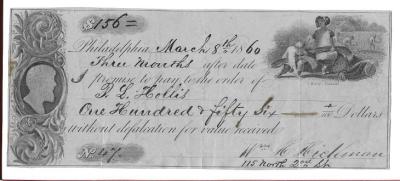 $156=
Philadelphia, March 8th 1860
Three Months after date
I promise to pay to the order of
P. L. Hollis
One Hundred & Fifty Six Dollars
without defalcation for value received
No. 47. Wm H. Richman
115 North 2nd St